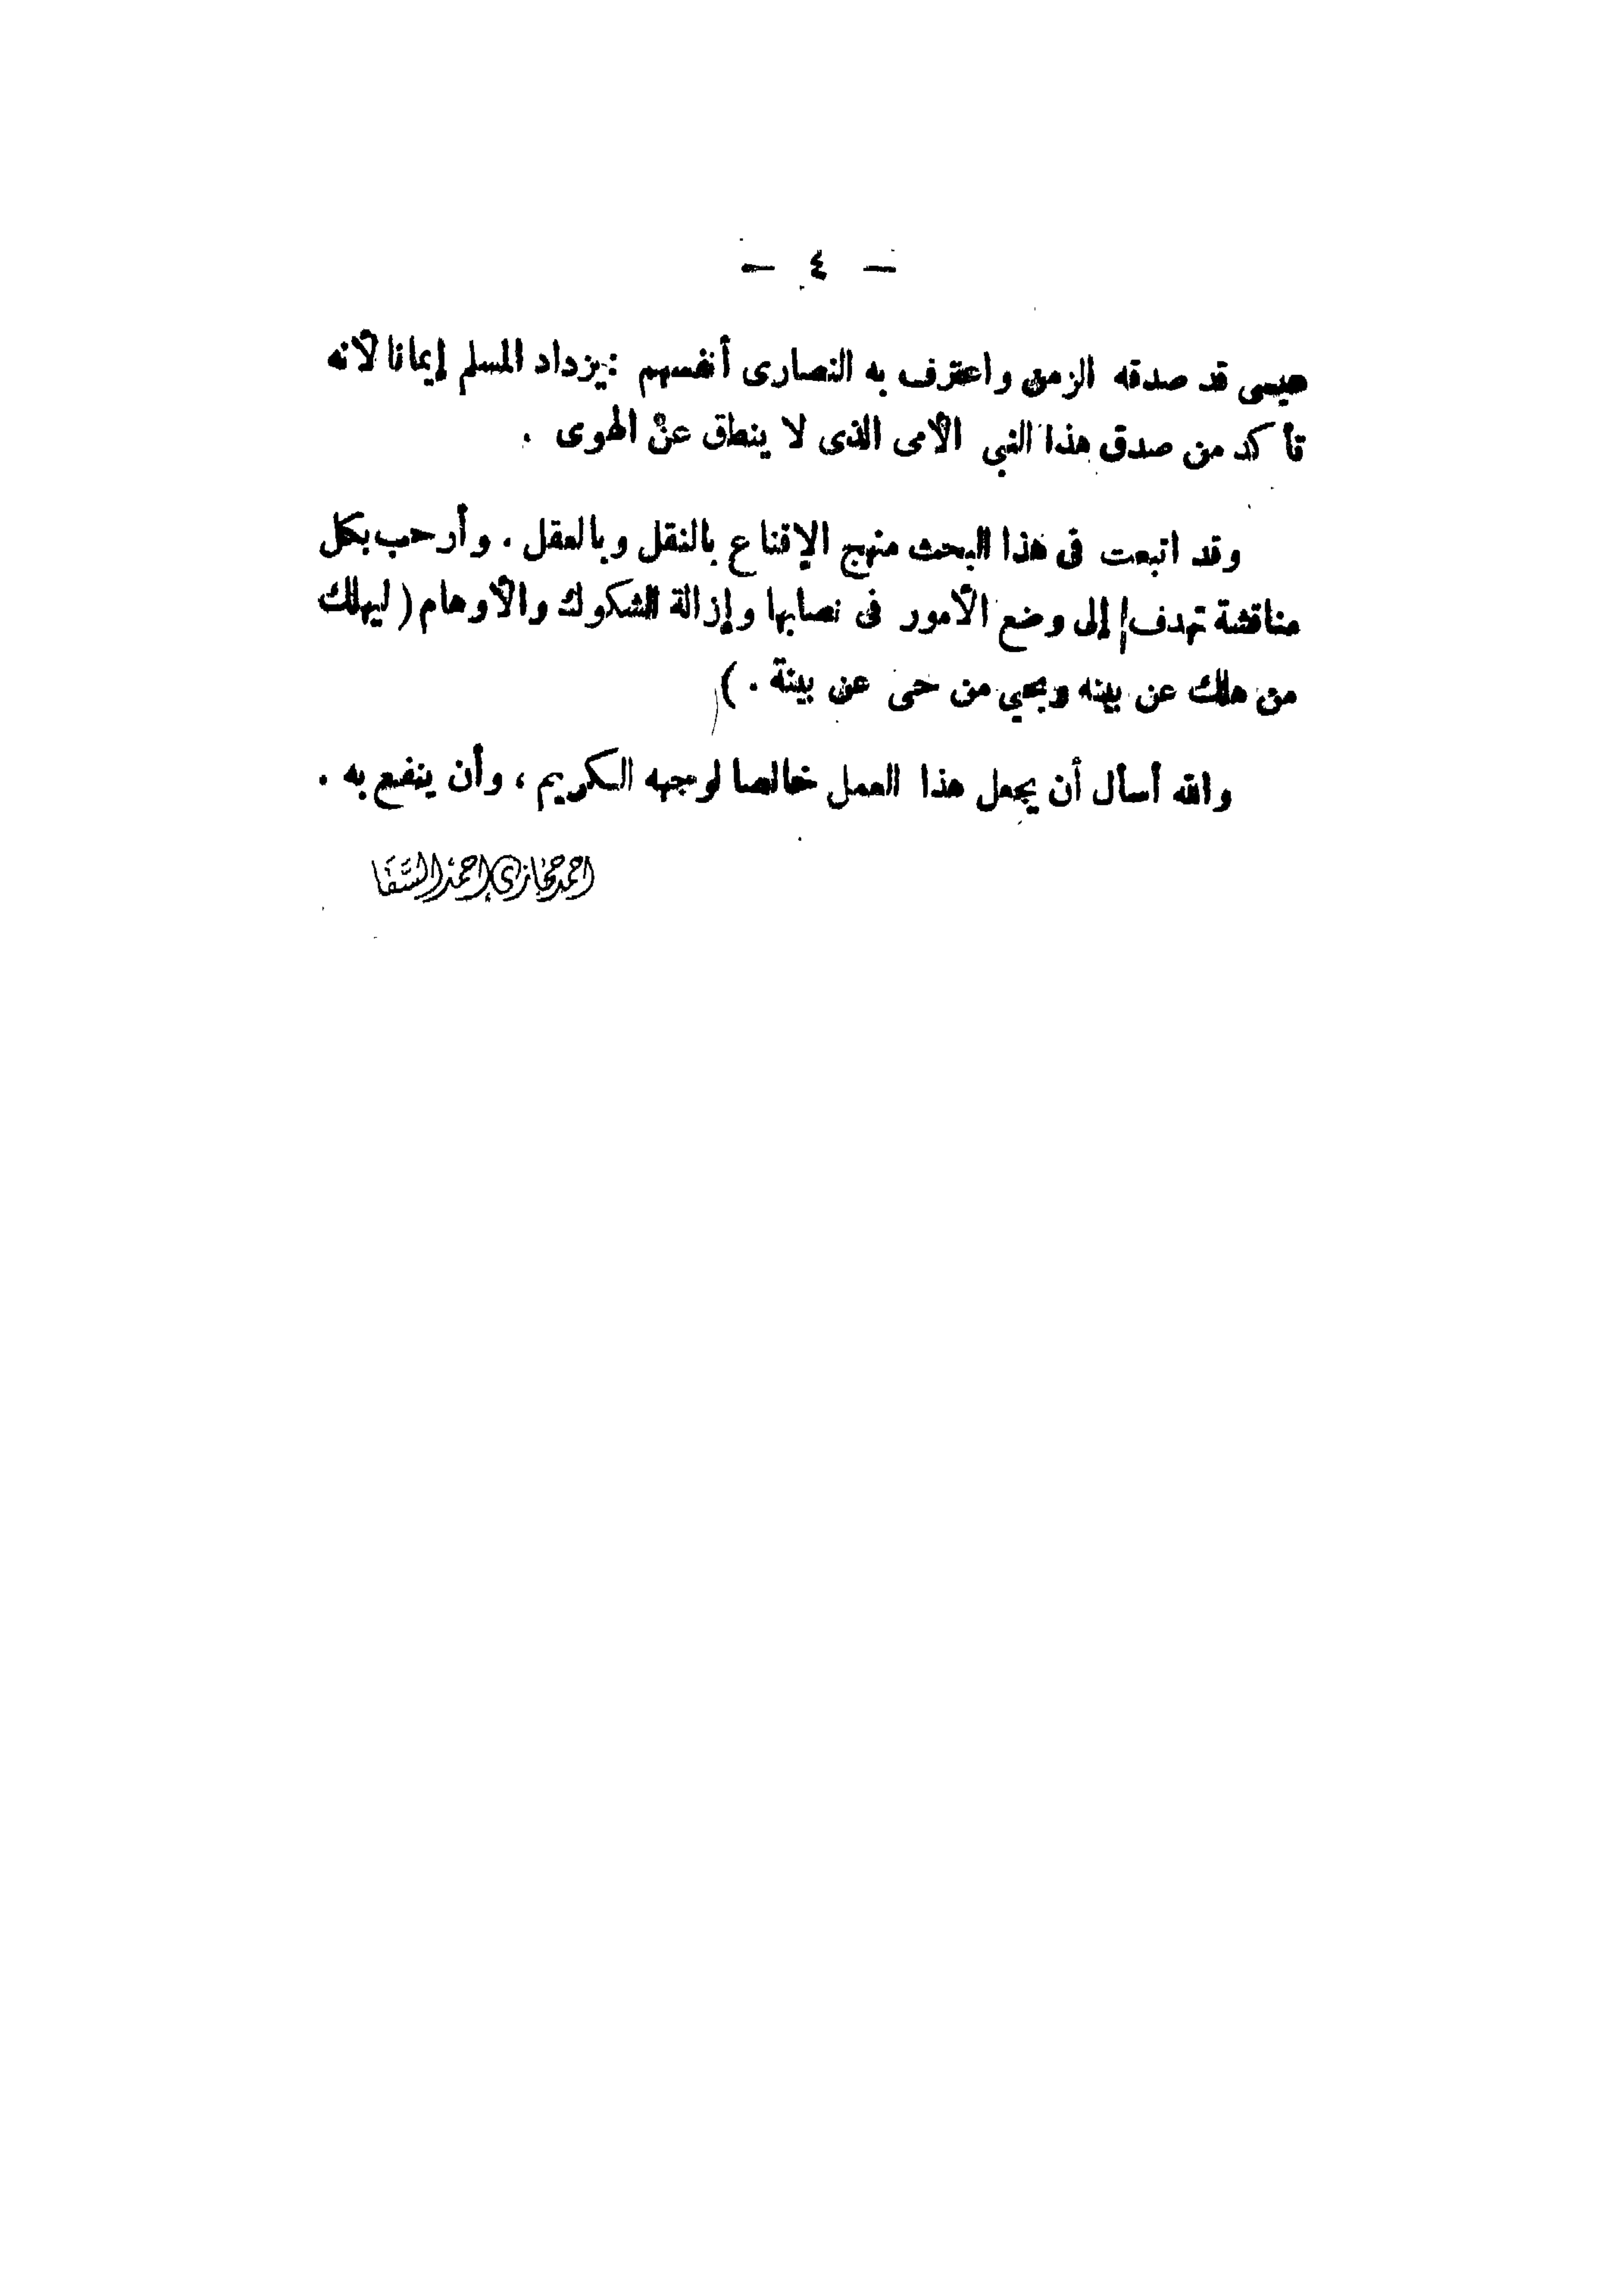 — ٤ —
عيسى قد صدقه الزمن واعترف به النصارى أنفسهم : يزداد المسلم إيمانا لأنه
تأكد من صدق هذا النبي الأمى الذى لا ينطق عن الهوى .
وقد اتبعت فى هذا البحث منهج الإقناع بالنقل وبالعقل . وأرحب بكل
مناقشة تهدف إلى وضع الأمور فى نصابها وإزالة الشكوك والأوهام ( ليهلك
من هلك عن بينه ويحيي من حى عن بينة . )
والله أسأل أن يجعل هذا العمل خالصا لوجهه الكريم ، وأن ينفع به .
احمد حجازي احمد السقا